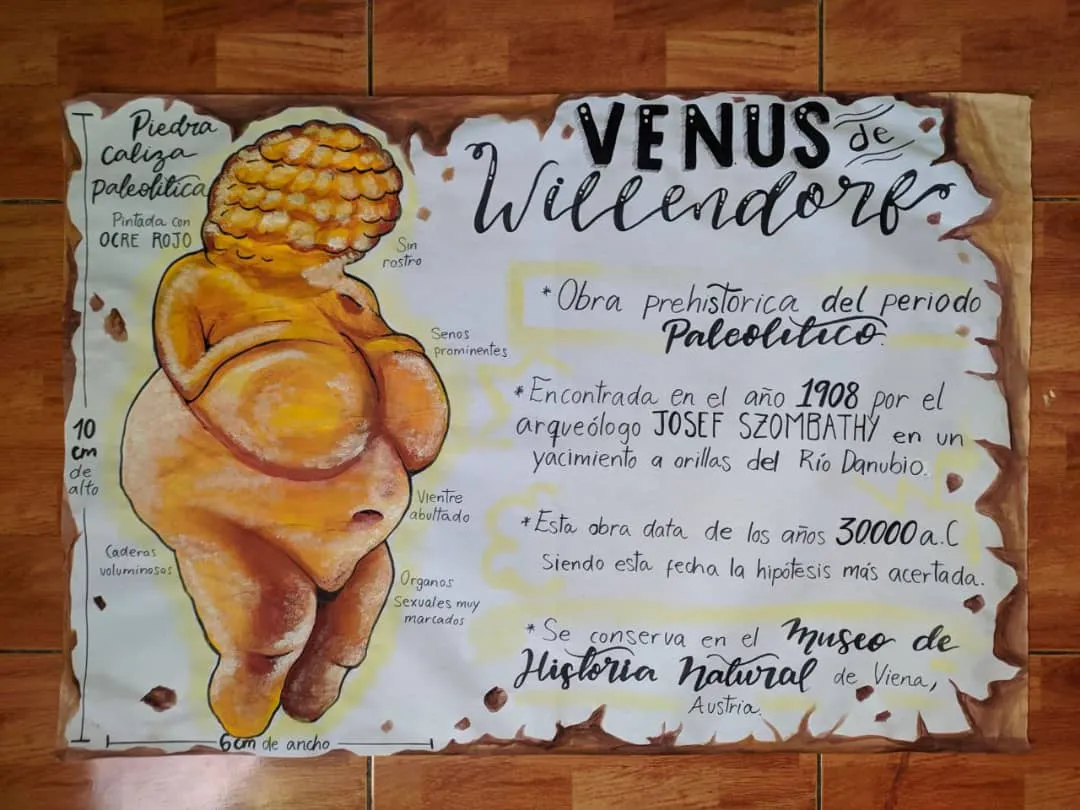 VENUS de
Willendorf
Piedra
caliza
paleolítica
Pintada con
OCRE ROJO
Sin
rostro
Senos
prominentes
10
cm
de
alto
Vientre
abultado
Caderas
voluminosas
Organos
Sexuales muy
marcados
6cm de ancho
*Obra prehistórica del periodo
Paleolítico.
*Encontrada en el año 1908 por el
arqueólogo JOSEF SZOMBATHY en un
yacimiento a orillas del Río Danubio.
*Esta obra data de los años 30000 a.C
Siendo esta fecha la hipótesis más acertada.
*Se conserva en el Museo de
Historia Natural de Viena,
Austria.